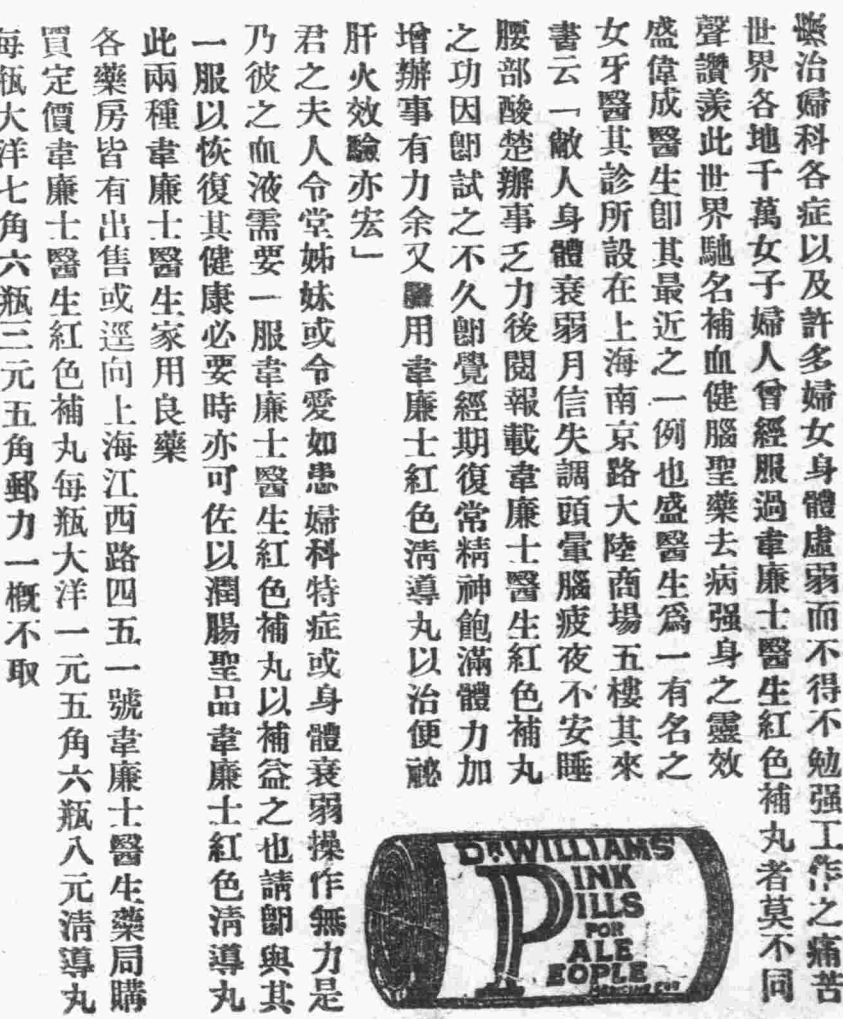 治婦科各症以及許多婦女身體虛弱而不得不勉强工作之痛苦
世界各地千萬女子婦人曾經服過韋廉士醫生紅色補丸者莫不同
聲讚羨此世界馳名補血健腦聖藥去病强身之靈效
盛偉成醫生卽其最近之一例也盛醫生爲一有名之
女牙醫其診所設在上海南京路大陸商場五樓其來
書云「敝人身體衰弱月信失調頭暈腦疲夜不安睡
腰部酸楚辦事乏力後閱報載韋廉士醫生紅色補丸
之功因卽試之不久卽覺經期復常精神飽滿體力加
增辦事有力余又用韋廉士紅色淸導丸以治便祕
肝火效驗亦宏」
君之夫人令堂姊妹或令愛如患婦科特症或身體衰弱操作無力是
乃彼之血液需要一服韋廉士醫生紅色補丸以補益之也請卽與其
一服以恢復其健康必要時亦可佐以潤腸聖品韋廉士紅色淸導丸
此兩種韋廉士醫生家用良藥
各藥房皆有出售或逕向上海江西路四五一號韋廉士醫生藥局購
買定價韋廉士醫生紅色補丸每瓶大洋一元五角六瓶八元淸導丸
每瓶大洋七角六瓶三元五角郵力一概不取
DR WILLIAMS'
PINK
PILLS
FOR
PALE
PEOPLE